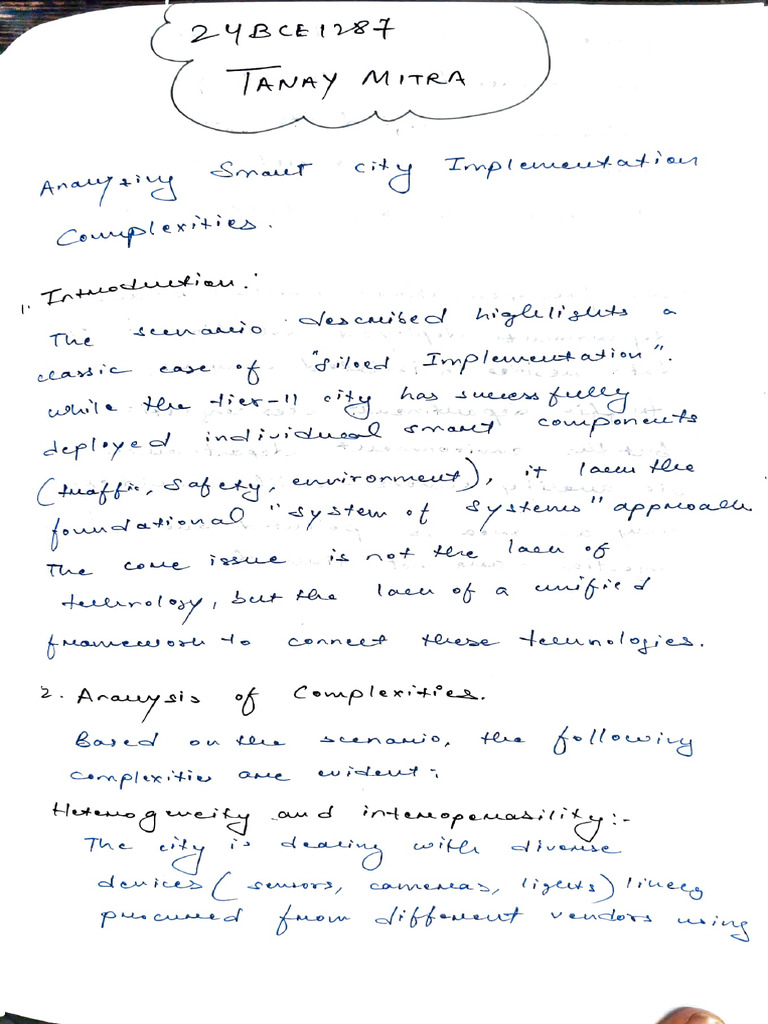 24BCE1287
TANAY MITRA
Analyzing Smart city Implementation
Complexities.
1. Introduction:
The scenario described highlights a
classic case of "Siloed Implementation".
while the tier-II city has successfully
deployed individual smart components
(traffic, safety, environment), it lacks the
foundational "system of systems" approach.
The core issue is not the lack of
technology, but the lack of a unified
framework to connect these technologies.
2. Analysis of Complexities.
Based on the scenario, the following
complexities are evident:
Heterogeneity and interoperability:-
The city is dealing with diverse
devices (sensors, cameras, lights) likely
procured from different vendors using